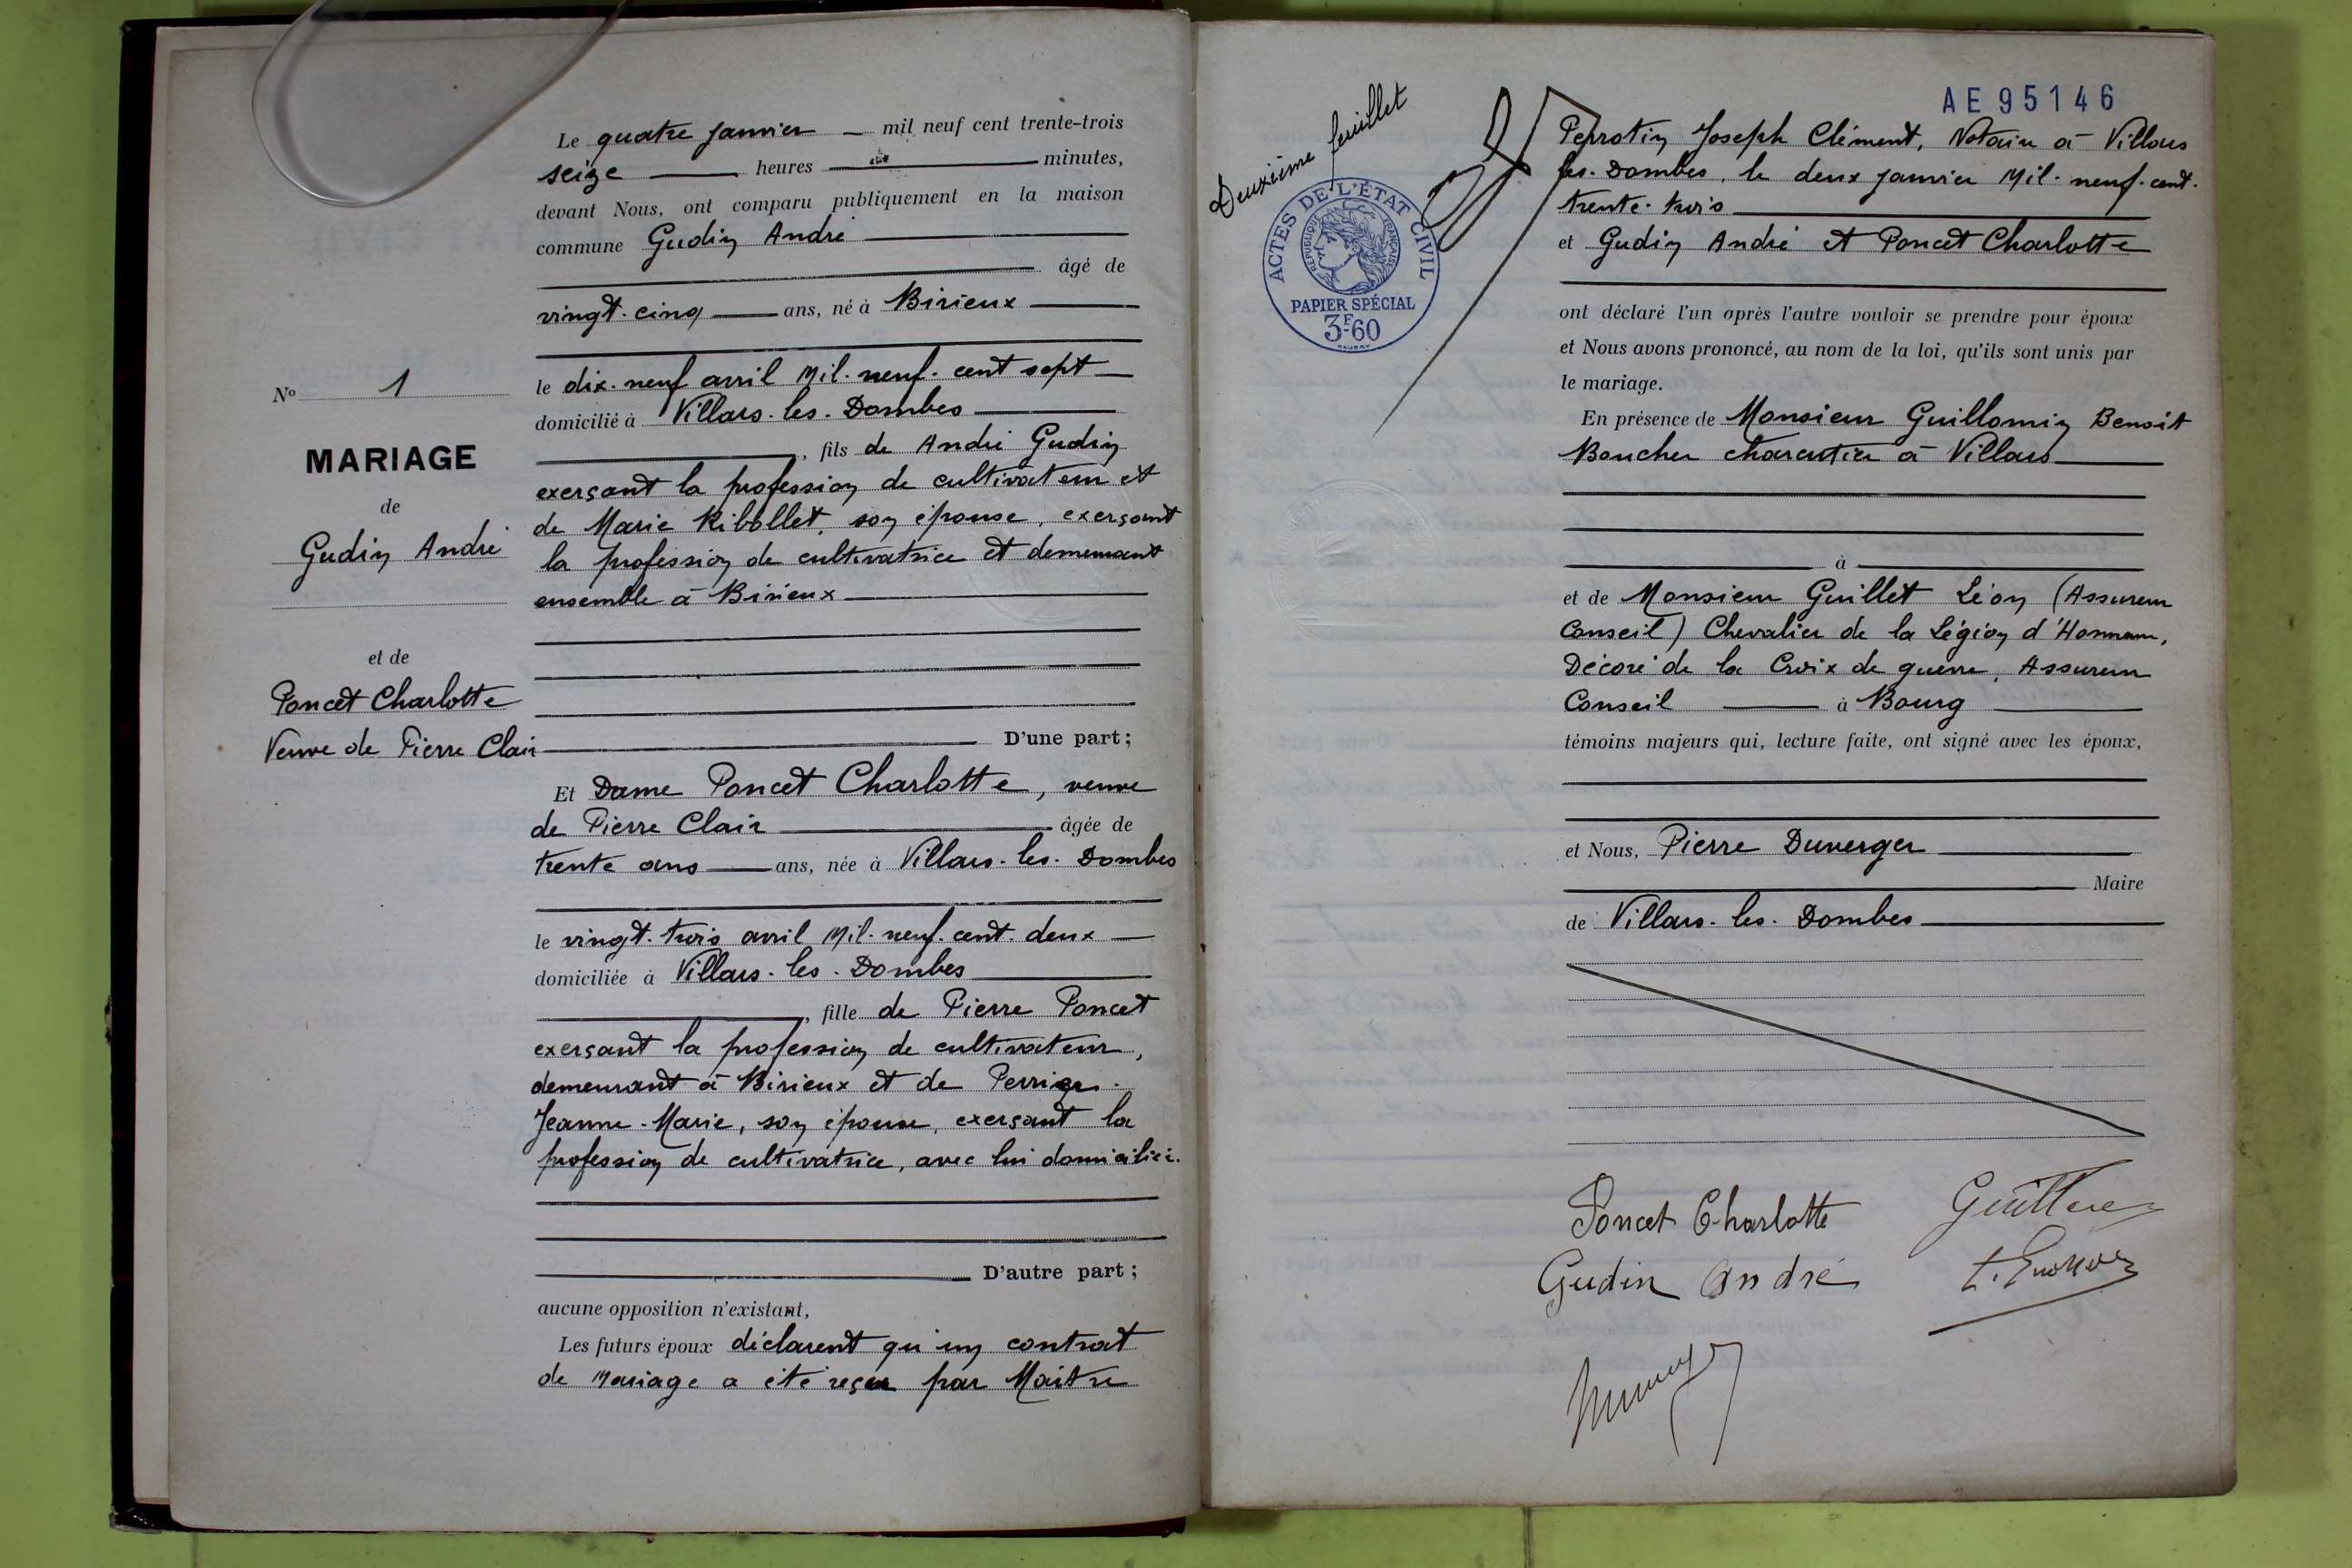 Le quatre janvier mil neuf cent trente-trois
seize heures minutes,
devant Nous, ont comparu publiquement en la maison
commune Gudin André
âgé de
vingt-cinq ans, né à Birieux
le dix-neuf avril Mil-neuf-cent sept
domicilié à Villars-les-Dombes
, fils de André Gudin
exerçant la profession de cultivateur et
de Marie Ribollet, son épouse, exerçant
la profession de cultivatrice et demeurant
ensemble à Birieux
D'une part;
Et Dame Poncet Charlotte, veuve
de Pierre Clair âgée de
trente ans ans, née à Villars-les-Dombes
le vingt-trois avril Mil-neuf-cent-deux
domiciliée à Villars-les-Dombes
, fille de Pierre Poncet
exerçant la profession de cultivateur,
demeurant à Birieux et de Perrier
Jeanne-Marie, son épouse, exerçant la
profession de cultivatrice, avec lui domiciliée.
D'autre part;
aucune opposition n'existant,
Les futurs époux déclarent qu'un contrat
de Mariage a été reçu par Maître
No 1
MARIAGE
de
Gudin André
et de
Poncet Charlotte
Veuve de Pierre Clair
Deuxième feuillet
ACTES DE L'ÉTAT CIVIL
RÉPUBLIQUE FRANÇAISE
PAPIER SPÉCIAL
3F60
AE95146
Perrotin Joseph Clément, Notaire à Villars
les-Dombes, le deux janvier Mil-neuf-cent-
trente-trois
et Gudin André et Poncet Charlotte
ont déclaré l'un après l'autre vouloir se prendre pour époux
et Nous avons prononcé, au nom de la loi, qu'ils sont unis par
le mariage.
En présence de Monsieur Guillomin Benoit
Boucher charcutier à Villars
à
et de Monsieur Guillet Léon (Assureur
Conseil) Chevalier de la Légion d'Honneur,
Décoré de la Croix de guerre, Assureur
Conseil à Bourg
témoins majeurs qui, lecture faite, ont signé avec les époux,
et Nous, Pierre Duverger
Maire
de Villars-les-Dombes
Poncet Charlotte
Gudin André